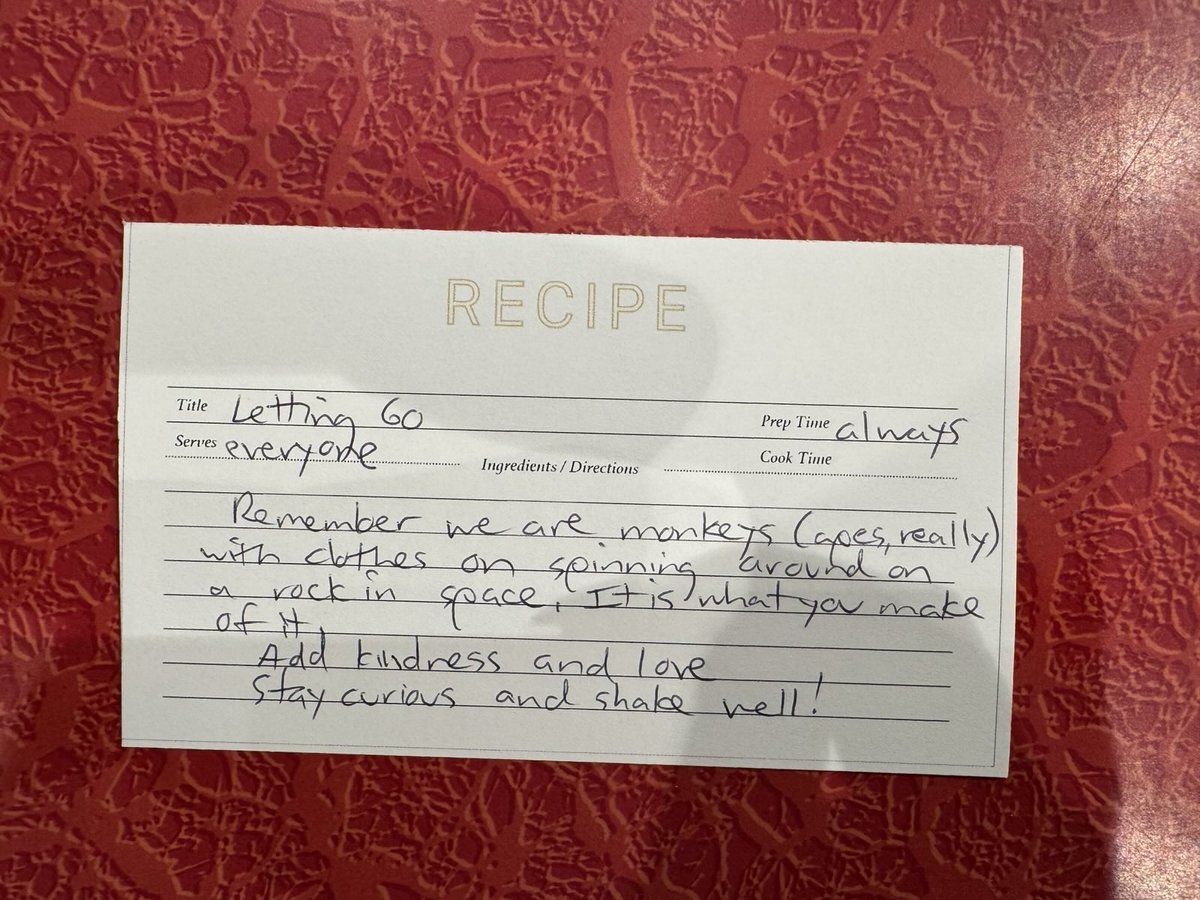 RECIPE
Title Letting Go Prep Time always
Serves everyone Cook Time
Ingredients / Directions
Remember we are monkeys (apes, really)
with clothes on spinning around on
a rock in space. It is what you make
of it.
Add kindness and love
Stay curious and shake well!